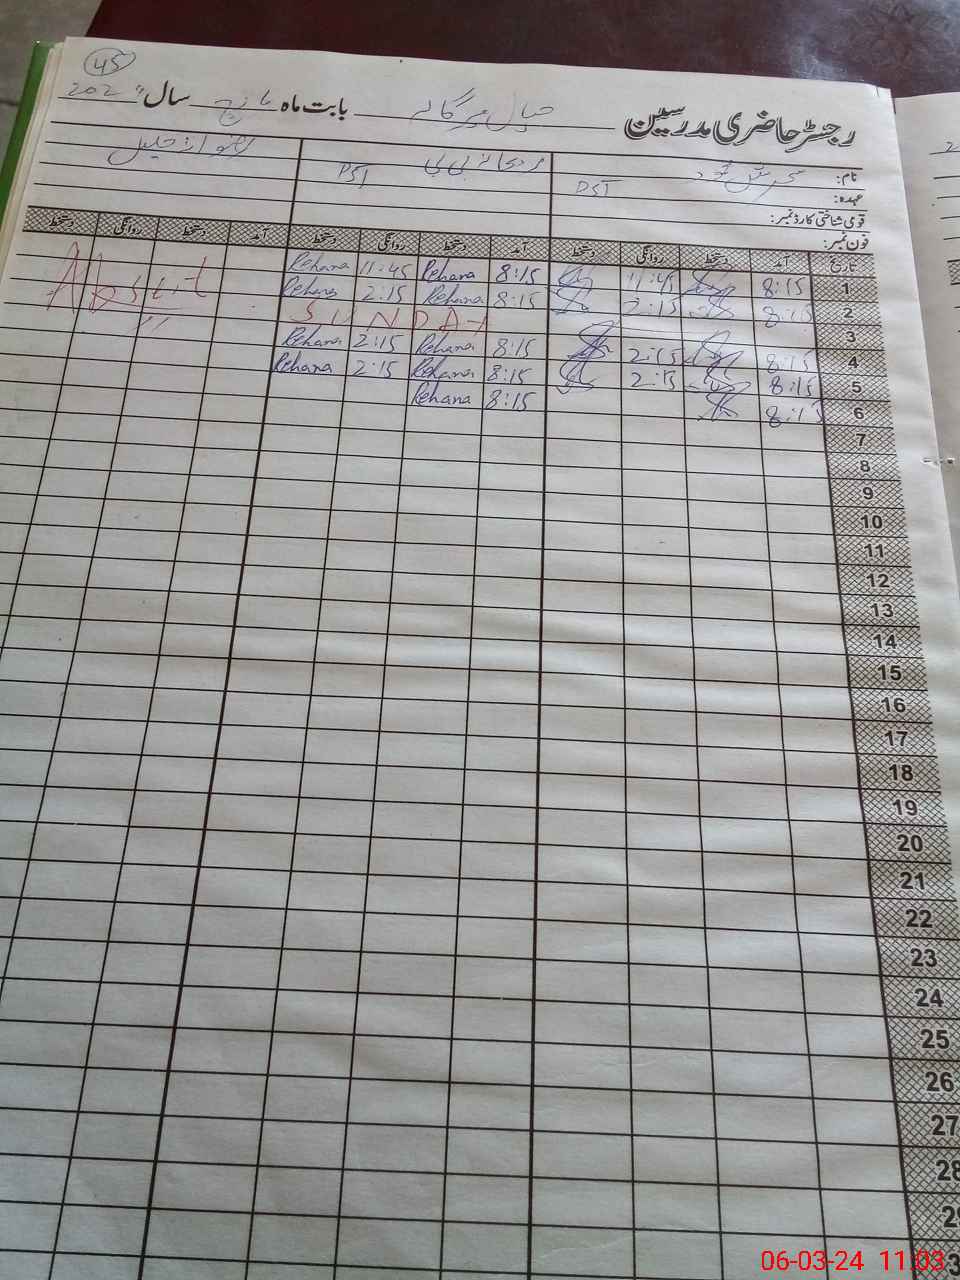 45
رجسٹر حاضری مدرسین بابت ماہ مارچ سال 2024ء
نام: ریحانہ بی بی
عہدہ: PST PST
قومی شناختی کارڈ نمبر:
فون نمبر:
تاریخ آمد دستخط روانگی دستخط آمد دستخط روانگی دستخط آمد دستخط روانگی دستخط
1 8:15 11:45 8:15 Rehana 11:45 Rehana Absent
2 8:15 2:15 8:15 Rehana 2:15 Rehana
3 SUNDAY
4 8:15 2:15 8:15 Rehana 2:15 Rehana
5 8:15 2:15 8:15 Rehana 2:15 Rehana
6 8:15 8:15 Rehana
7
8
9
10
11
12
13
14
15
16
17
18
19
20
21
22
23
24
25
26
27
28
29
06-03-24 11:03